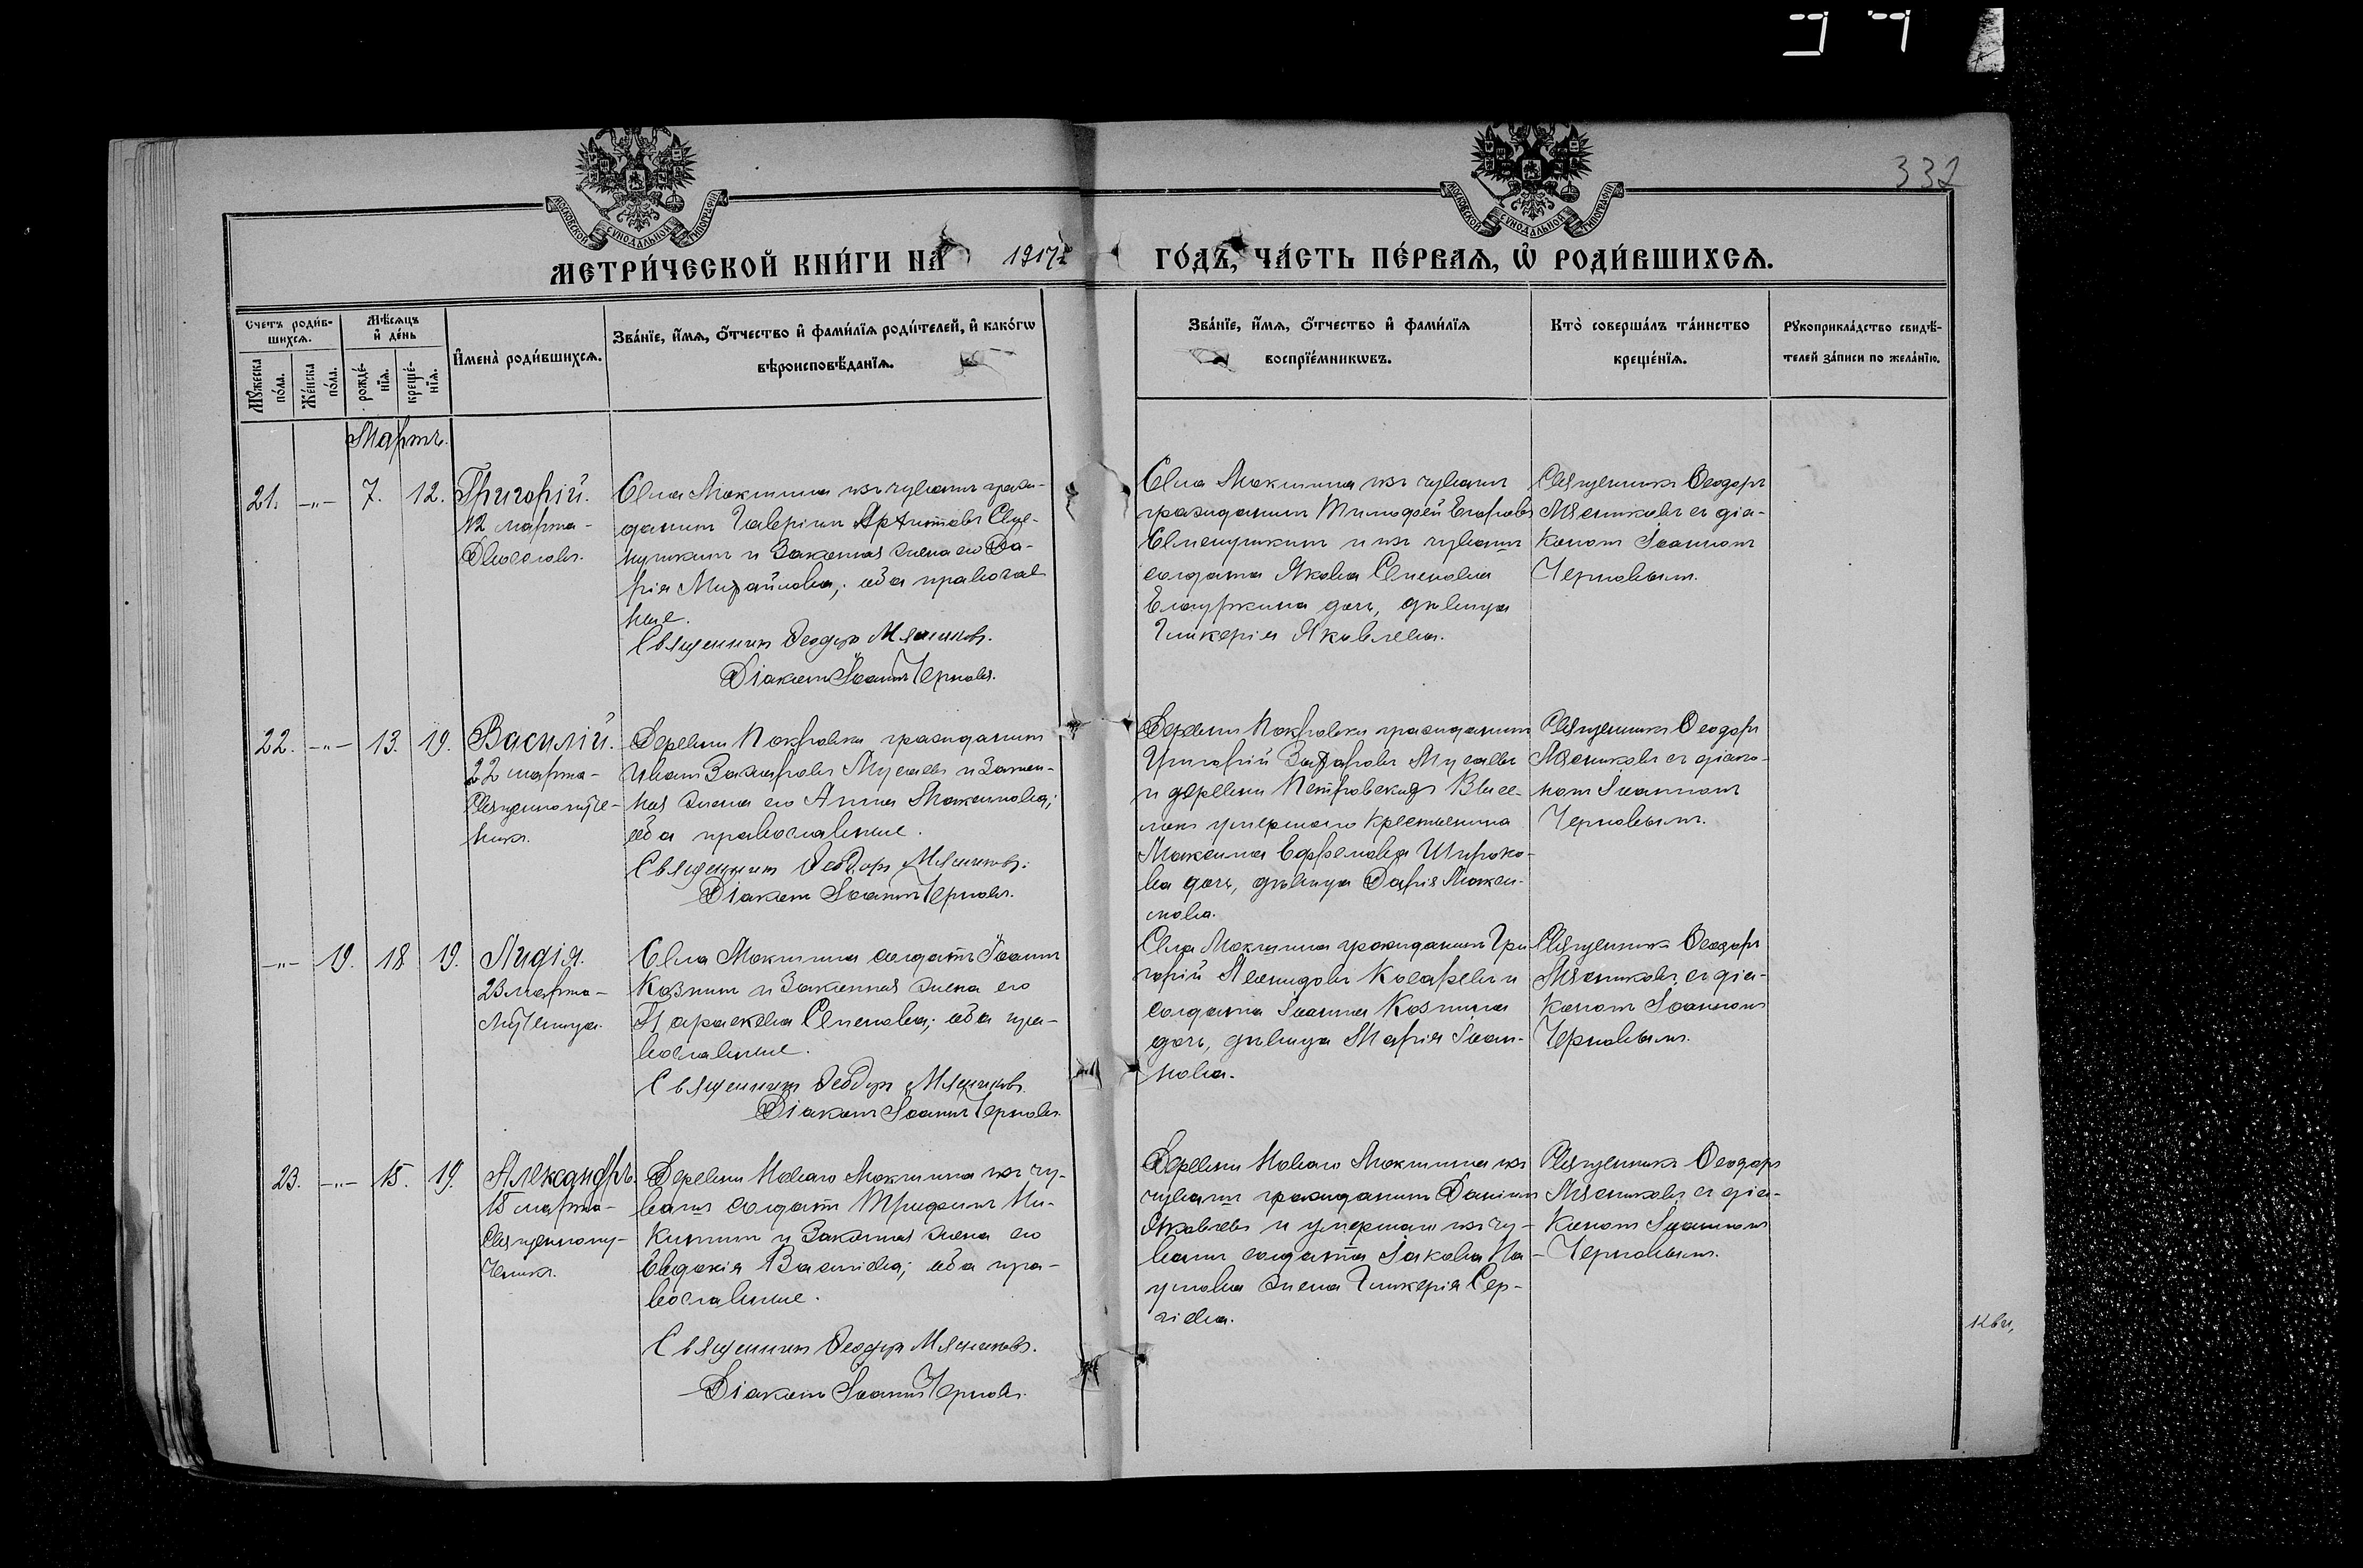 332
МОСКОВСКОЙ СУНОДАЛЬНОЙ ТИПОГРАФІИ
МОСКОВСКОЙ СУНОДАЛЬНОЙ ТИПОГРАФІИ
МЕТРИ́ЧЕСКОЙ КНИ́ГИ НА 1917 г.
ГО́ДЪ, ЧА́СТЬ ПЕ́РВАЯ, Ѡ РОДИ́ВШИХСЯ.
Счетъ роди́в-
шихся.
Мꙋ́жеска
по́ла.
Же́нска
по́ла.
Мѣ́сяцъ
и де́нь
рожде́-
нїя.
креще́-
нїя.
И҆мена̀ роди́вшихся.
Зва́нїе, и҆́мя, ѻ҆́тчество и҆ фами́лїя роди́телей, и҆ како́гѡ
вѣроисповѣ́данїя.
Зва́нїе, и҆́мя, ѻ҆́тчество и҆ фами́лїя
воспрїе́мникѡвъ.
Кто̀ соверша́лъ та́инство
креще́нїя.
Рꙋкоприкла́дство свидѣ́-
телей за́писи по жела́нїю.
Мартъ.
21. -„- 7. 12.
Григорій.
12 марта -
Двоесловъ.
Села Мокшина изъ чувашъ граж-
данинъ Валеріинъ
и законная жена его Да-
рія Михайлова; оба православ
ные.
Священникъ Ѳеодоръ Мясниковъ.
Діаконъ Іоаннъ Черновъ.
Села Мокшина изъ чувашъ
гражданинъ Тимофей Егоровъ
и изъ чувашъ
солдата Якова Семенова
дочь, дѣвица
Гликерія Яковлева.
Священникъ Ѳеодоръ
Мясниковъ съ діа-
кономъ Іоанномъ
Черновымъ.
22. -„- 13. 19.
Василій.
22 марта -
Священномуче-
никъ.
Деревни Покровки гражданинъ
Иванъ Захаровъ Мусаевъ и закон-
ная жена его Анна Максимова;
оба православные.
Священникъ Ѳеодоръ Мясниковъ.
Діаконъ Іоаннъ Черновъ.
Деревни Покровки гражданинъ
Григорій Захаровъ Мусаевъ
и деревни Петровскихъ Высе-
локъ умершаго крестьянина
Максима Ефремова Широко-
ва дочь, дѣвица Дарія Макси-
мова.
Священникъ Ѳеодоръ
Мясниковъ съ діако-
номъ Іоанномъ
Черновымъ.
-„- 19. 18 19.
Лидія.
23 марта -
мученица.
Села Мокшина солдатъ Іоаннъ
Козминъ и законная жена его
Параскева Семенова; оба пра-
вославные.
Священникъ Ѳеодоръ Мясниковъ.
Діаконъ Іоаннъ Черновъ.
Села Мокшина гражданинъ Гри-
горій Леонидовъ Косаревъ и
солдата Іоанна Козмина
дочь, дѣвица Марія Іоан-
нова.
Священникъ Ѳеодоръ
Мясниковъ съ діа-
кономъ Іоанномъ
Черновымъ.
23. -„- 15. 19.
Александръ.
15 марта -
Священному-
ченикъ.
Деревни Новаго Мокшина изъ чу-
вашъ солдатъ Трифонъ Ни-
китинъ и законная жена его
Евдокія Васильева; оба пра-
вославные.
Священникъ Ѳеодоръ Мясниковъ.
Діаконъ Іоаннъ Черновъ.
Деревни Новаго Мокшина изъ
чувашъ гражданинъ Даніилъ
Яковлевъ и умершаго изъ чу-
вашъ солдата Іакова На-
умова жена Гликерія Сер-
гіева.
Священникъ Ѳеодоръ
Мясниковъ съ діа-
кономъ Іоанномъ
Черновымъ.